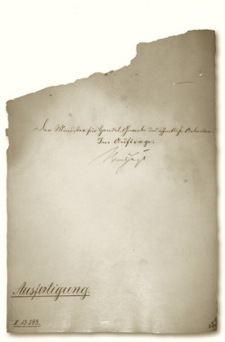 Der Minister für Handel, Gewerbe und öffentliche Arbeiten.
Im Auftrage.
Ausfertigung.